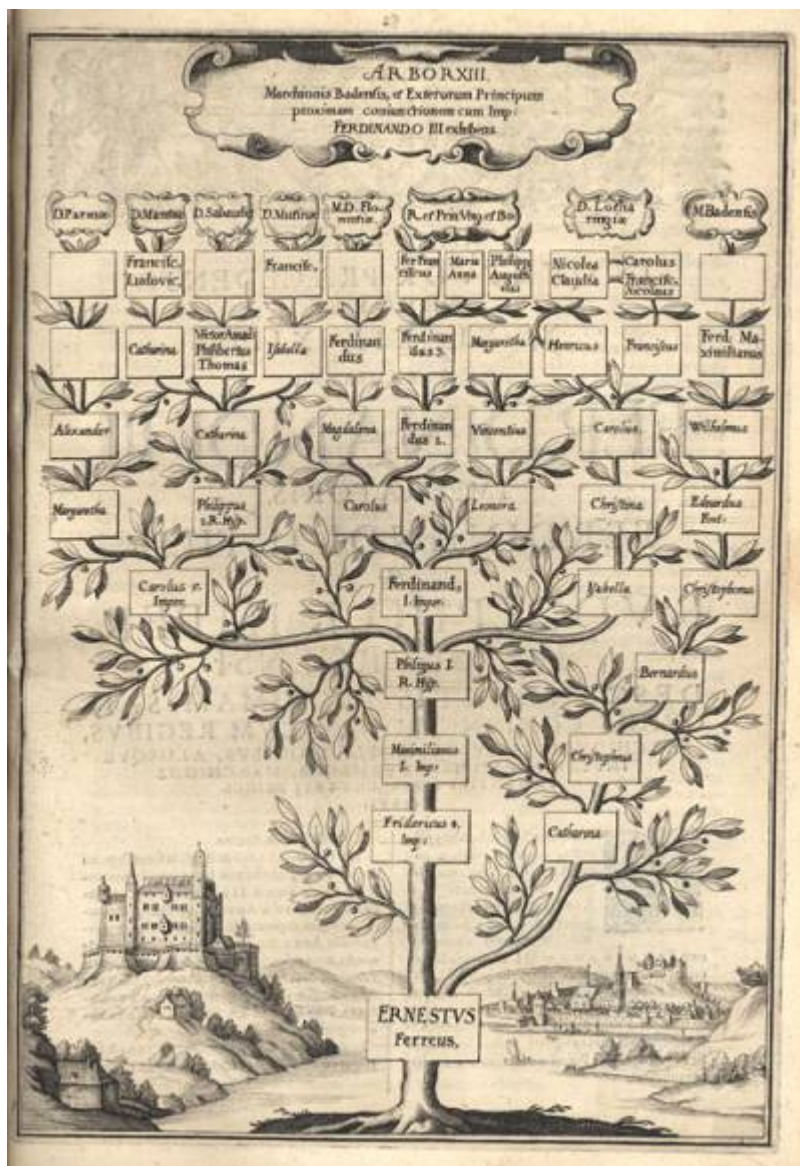 ARBOR XIII.
Marchionis Badensis, et Exterorum Principum
proximam coniunctionem cum Imp:
FERDINANDO III exhibens
D. Parmæ D. Mantuæ D. Sabaudiæ D. Mutinæ M.D. Flo
rentiæ R. et Prin Vng. et Bo. D. Lotha
ringiæ M. Badensis
Francisc.
Ludovic,
Francisc,
Fer Fran
ciscus
Maria
Anna
Philipp
August
Nicolea
Claudia
Carolus
Francisc,
Nicolaus
Catharina
Victor Amad:
Philibertus
Thomas
Ysabella
Ferdinan
dus
Ferdinan
dus 3.
Margaretha
Henricus
Franciscus
Ferd: Ma
ximilianus
Alexander
Catharina
Magdalena
Ferdinan
dus 2.
Vincentius
Carolus.
Wilhelmus
Margaretha
Philippus
2. R. Hisp.
Carolus
Leonora
Christina
Eduardus
Fort:
Carolus 5.
Imper.
Ferdinand,
I. Imper.
Ysabella
Christophorus
Philippus I.
R. Hisp.
Bernardus
Maximilianus
I. Imp:
Christophorus
Fridericus
Imp:
Catharina
ERNESTVS
Ferreus,